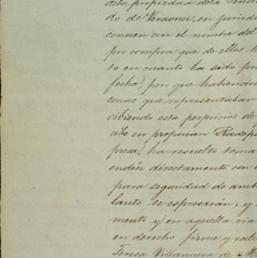 de la propiedad de la Señora
do de Verdones, en jurisdi
conocen con el nombre del
por compra que de ellos h
to en cuanto ha sido po
fecha, por que habiendo
sonas que representaban
cibiendo esta perjuicios de
cibo en proporcion
presa, ha resuelto toma
endose directamente con
para seguridad de amb
lante se espresarán, y
mente y en aquella via
en derecho firme y vale
Teresa Villanueva de M